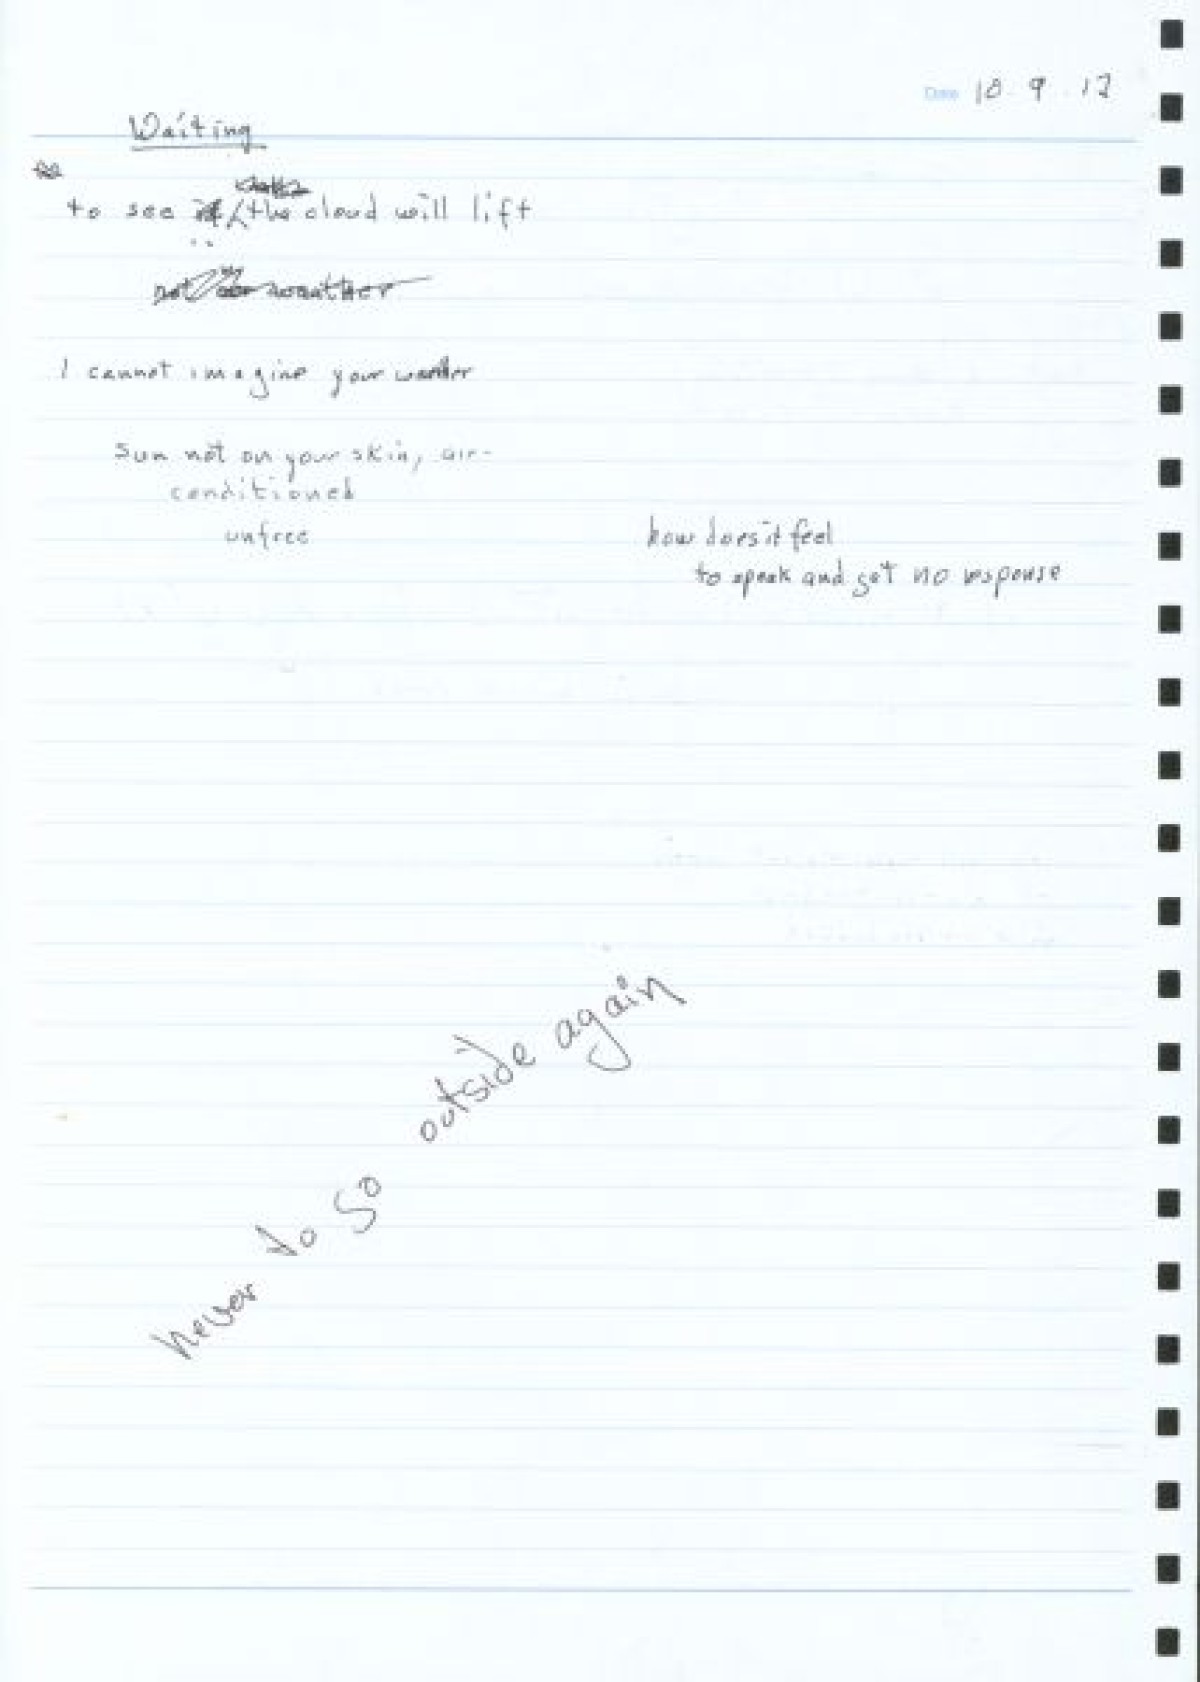 Date 10.9.12
Waiting
to see if the cloud will lift
not weather
I cannot imagine your weather
sun not on your skin, air-
conditioned
unfree
how does it feel
to speak and get no response
never to go outside again